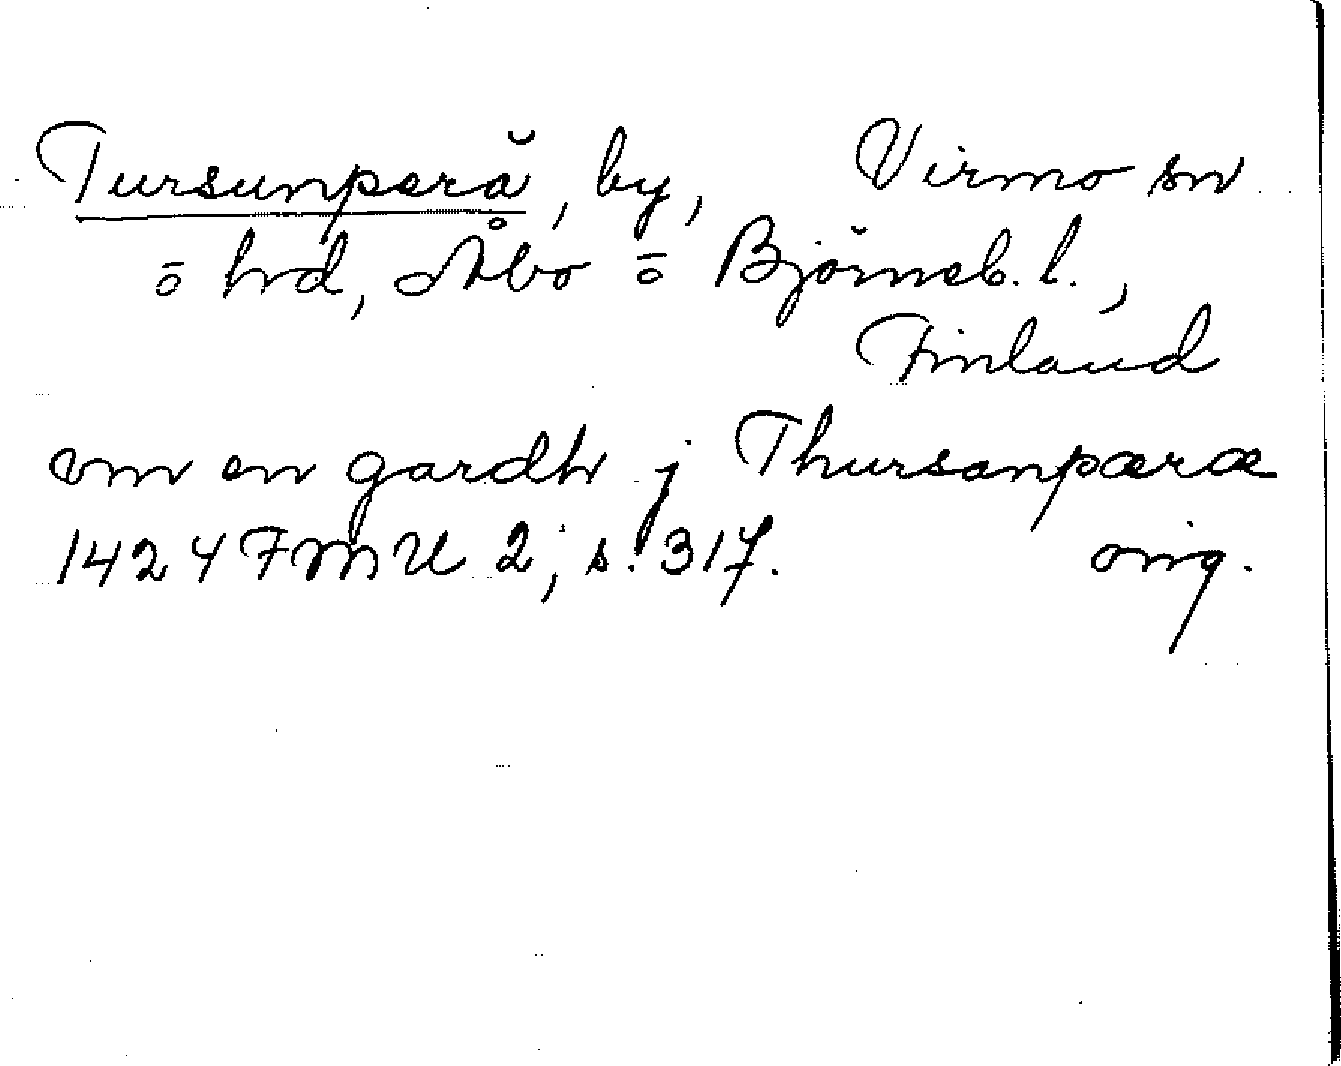 Tursunperä, by, Virmo sn
o hd, Åbo o Björneb. l.,
Finland
vm en gardh j Thursanpæræ
1424 FMU 2, s. 317. orig.